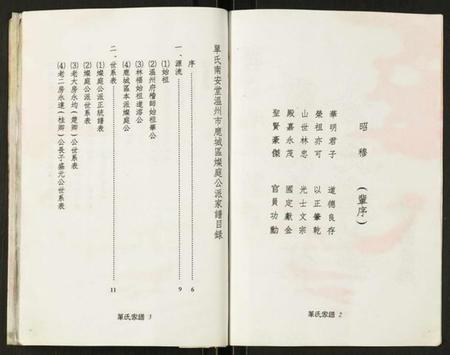 昭穆 (輩序)
華明君子 道德良存
榮祖亦可 以正肇乾
山世林忠 光士文宗
殿嘉永茂 國定獻金
聖賢豪傑 官員功勳
單氏家譜 2
單氏南安堂溫州市鹿城區燦庭公派家譜目錄
序 6
一、源流 9
⑴始祖
⑵溫州府檜師始祖華公
⑶林橋始祖道溶公
⑷鹿城區本派燦庭公
二、世系表 11
⑴燦庭公正統譜表
⑵燦庭公派世系表
⑶老大房永均(楚卿)公世系表
⑷老二房永達(桂卿)公長子盛元公世系表
單氏家譜 3